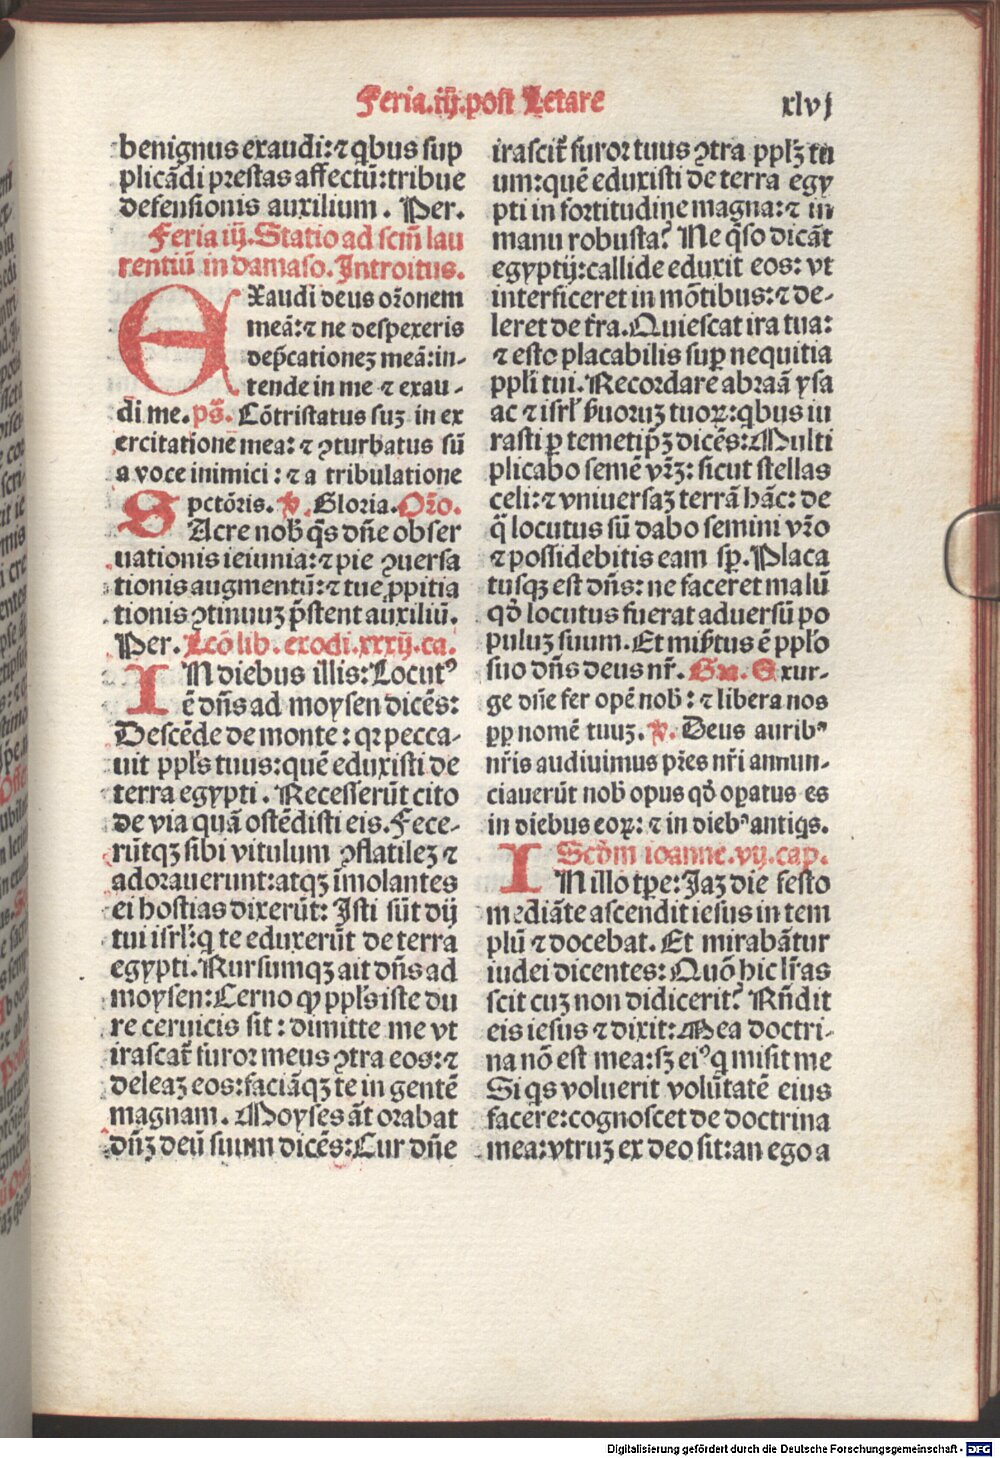 Feria.iij.post Letare
xlvj
benignus exaudi:⁊ qbus sup
plicādi prestas affectū:tribue
defensionis auxilium. Per.
Feria iij. Statio ad scm̄ lau
rentiū in damaso. Introitus.
EXaudi deus or̄onem
meā:⁊ ne despexeris
dep̄cationeꝫ meā:in-
tende in me ⁊ exau-
di me. ps̄. Cōtristatus suꝫ in ex
ercitatione mea: ⁊ ꝯturbatus sū
a voce inimici: ⁊ a tribulatione
pctōris. ℣. Gloria. Or̄o.
SAcre nob̄ qs̄ dn̄e obser
uationis ieiunia:⁊ pie ꝯuersa
tionis augmentū:⁊ tue ꝓpitia
tionis ꝯtinuuꝫ p̄stent auxiliū.
Per. Lcō lib. exodi.xxxij.ca.
IN diebus illis: Locutꝰ
ē dn̄s ad moysen dicēs:
Descēde de monte: qꝛ pecca-
uit ppl̄s tuus:quē eduxisti de
terra egypti. Recesserūt cito
de via quā ostēdisti eis. Fece-
rūtqꝫ sibi vitulum ꝯflatileꝫ ⁊
adorauerunt:atqꝫ īmolantes
ei hostias dixerūt: Isti sūt dij
tui isrl̄:q te eduxerūt de terra
egypti. Rursumqꝫ ait dn̄s ad
moysen: Cerno ꝙ ppl̄s iste du
re ceruicis sit: dimitte me vt
irascat̄ furor meus ꝯtra eos:⁊
deleaꝫ eos:faciāqꝫ te in gentē
magnam. Moyses āt orabat
dn̄ꝫ deū suum dicēs: Cur dn̄e
irascit̄ furor tuus ꝯtra ppl̄ꝫ tu
um:quē eduxisti de terra egy
pti in fortitudine magna:⁊ in
manu robusta? Ne q̄so dicāt
egyptij:callide eduxit eos: vt
interficeret in mōtibus:⁊ de-
leret de t̄ra. Quiescat ira tua:
⁊ esto placabilis suꝑ nequitia
ppl̄i tui. Recordare abraā ysa
ac ⁊ isrl̄ ẜuoruꝫ tuoꝝ:qbus iu
rasti ꝑ temetip̄ꝫ dicēs: Multi
plicabo semē vr̄ꝫ: sicut stellas
celi:⁊ vniuersaꝫ terrā hāc: de
q̄ locutus sū dabo semini vr̄o
⁊ possidebitis eam sꝑ. Placa
tusqꝫ est dn̄s: ne faceret malū
qđ locutus fuerat aduersū po
puluꝫ suum. Et miẜtus ē ppl̄o
suo dn̄s deus nr̄. Gr̄. Exur-
ge dn̄e fer opē nob̄: ⁊ libera nos
ꝓp nomē tuuꝫ. ℣. Deus auribꝰ
nr̄is audiuimus pr̄es nr̄i annun-
ciauerūt nob̄ opus qđ opatus es
in diebus eoꝝ: ⁊ in diebꝰ antiqs.
Scđm ioanne.vij.cap.
IN illo tp̄e: Jaꝫ die festo
mediāte ascendit iesus in tem
plū ⁊ docebat. Et mirabātur
iudei dicentes: Quō hic lr̄as
scit cuꝫ non didicerit? Rn̄dit
eis iesus ⁊ dixit: Mea doctri-
na nō est mea: sꝫ eiꝰ q misit me
Si qs voluerit volūtatē eius
facere:cognoscet de doctrina
mea:vtruꝫ ex deo sit:an ego a
Digitalisierung gefördert durch die Deutsche Forschungsgemeinschaft - DFG